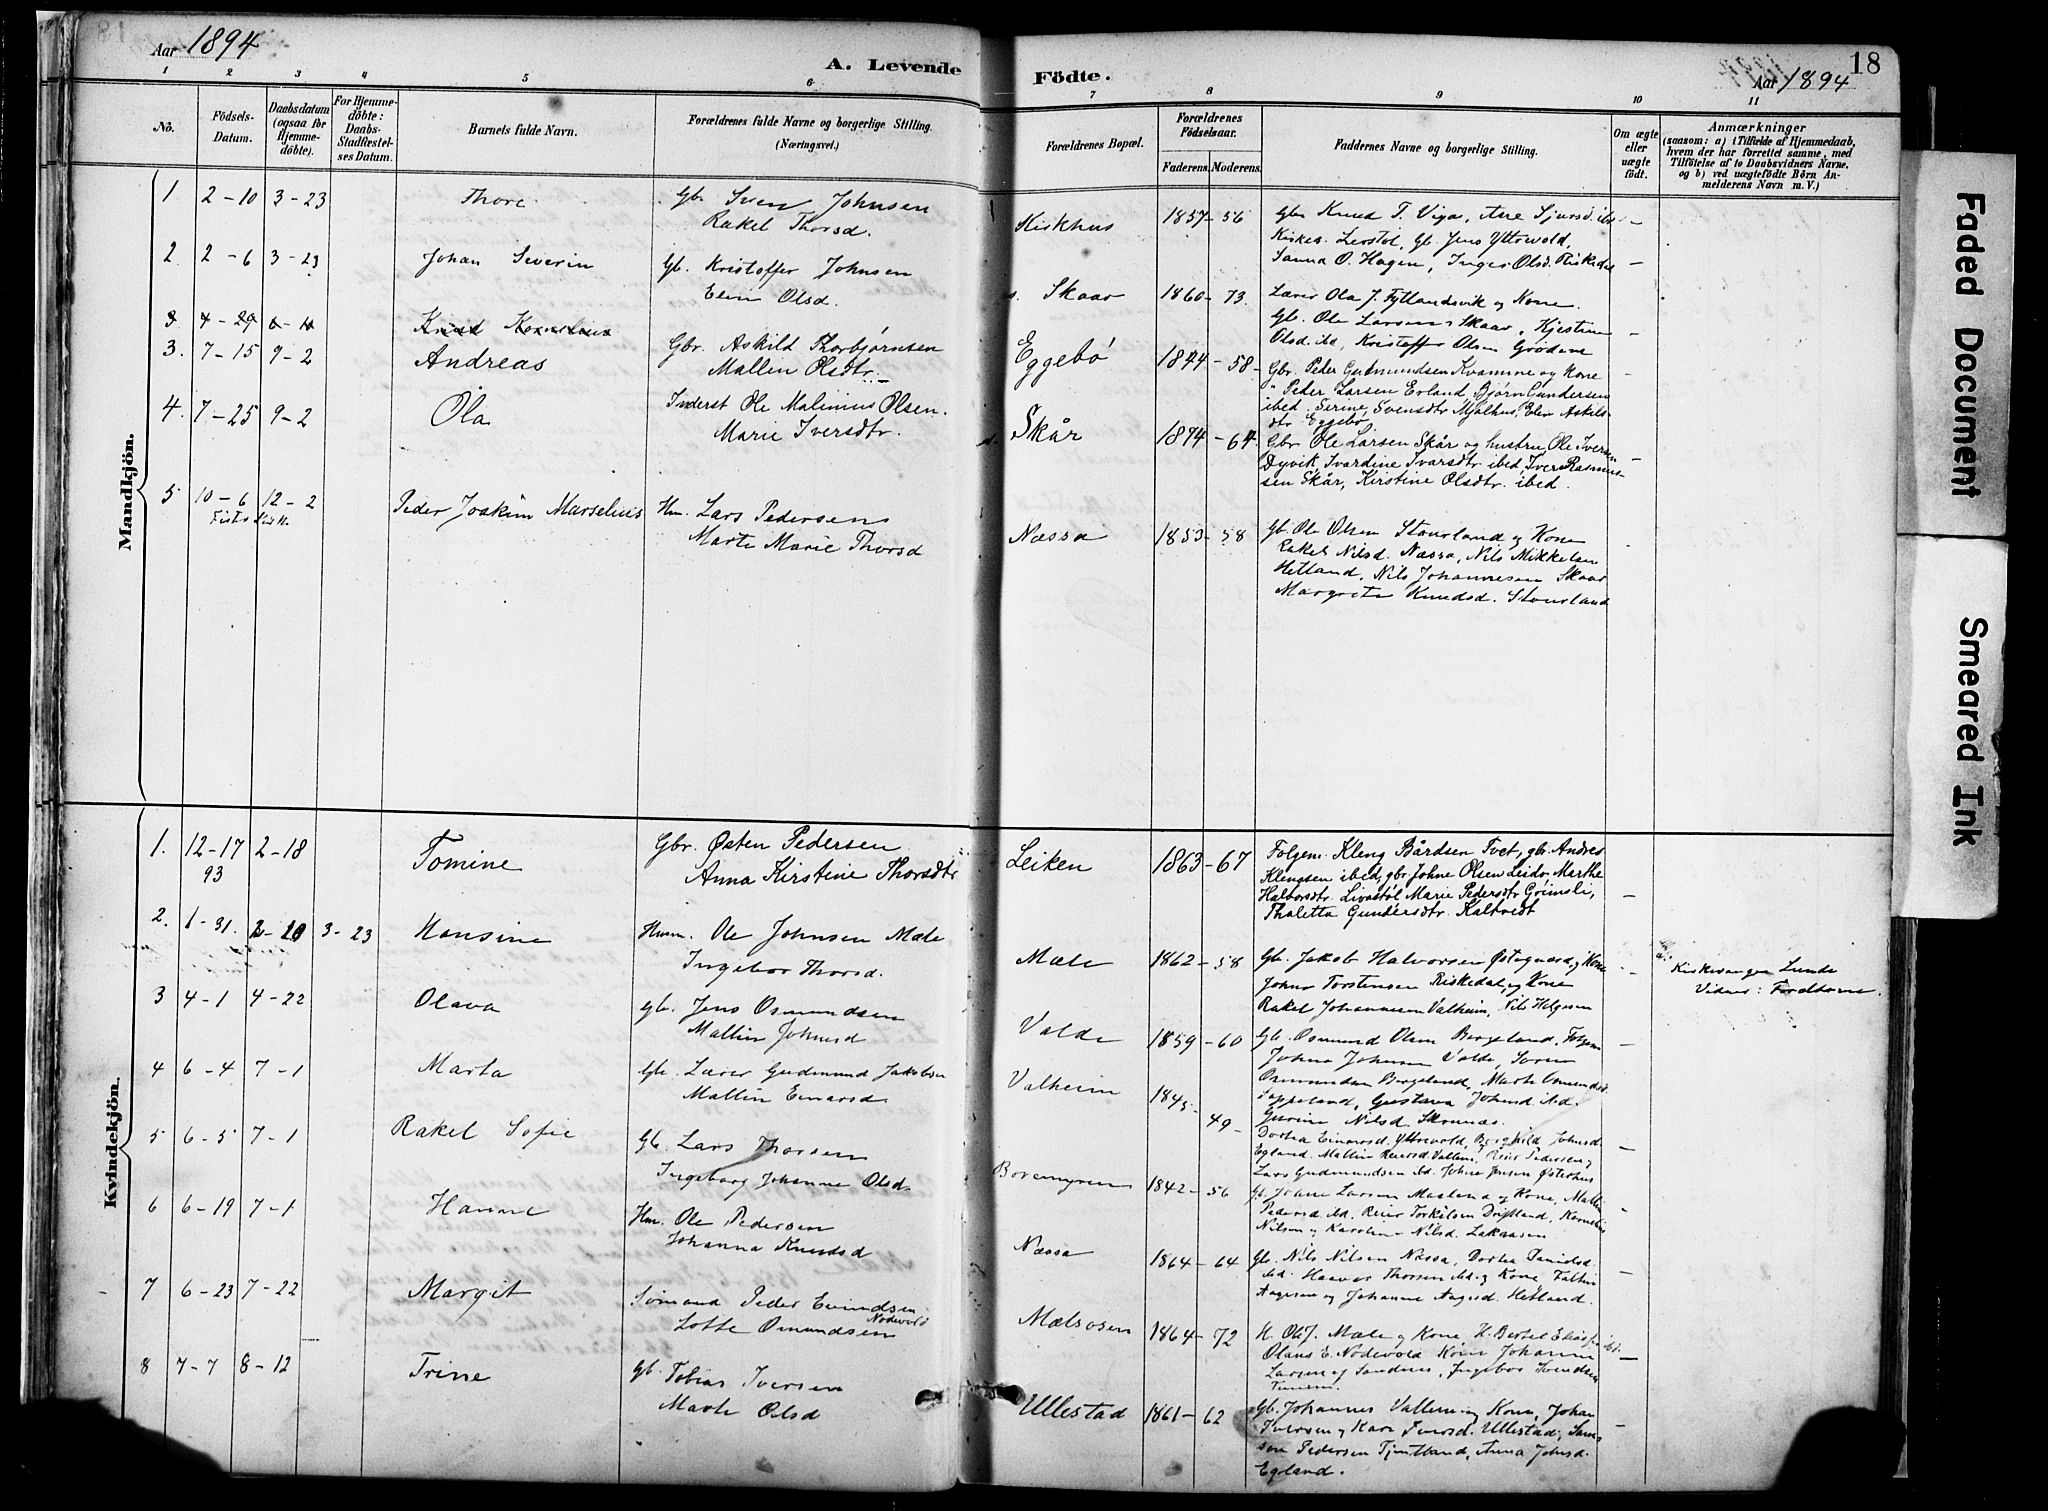 Aar 1894
A. Levende
Födte.
18
Aar 1894
1 2 3 4 5 6
7 8 9 10 11
No.
Födsels-Datum.
Daabsdatum (ogsaa for Hjemme-döbte).
For Hjemme-döbte: Daabs-Stadfæstel-ses Datum.
Barnets fulde Navn.
Forældrenes fulde Navne og borgerlige Stilling. (Næringsvei.)
Forældrenes Bopæl.
Forældrenes Födselsaar.
Faderens. Moderens.
Faddernes Navne og borgerlige Stilling.
Om ægte eller uægte født.
Anmærkninger
(saasom: a) i Tilfælde af Hjemmedaab,
hvem der har forrettet samme, med
Tilføielse af to Daabsvidners Navne.
og b) ved uægtefödte Börn An-
melderens Navn m. V.)
Mandkjön.
1 2-10 3-23 Thore Gbr Sven Johnsen
Rakel Thorsd.
Kirkhus 1857-56 Gbr Knud T. Viga, Ane Sjursd. ibd
Lerstöl, Gb. Jens Yttrevold,
Sanna O. Hagen, Inger Olsd. Riskedal
2. 2-6 3-23 Johan Severin Gb. Kristoffer Johnsen
Elen Olsd.
Skaar 1860-73 Lærer Ola J. Fytlandsvik og Kone
Gb. Ole Larsen Skaar, Kjestine
Olsd. ibd, Kristoffer Olsen Grödem
3 4-29 Knud Kornelius
3. 7-15 9-2 Andreas Gbr. Askild Thorbjörnsen
Mallin Olsdtr.
Eggebö 1844-58 Gbr. Peder Gudmundsen Kvamme og Kone
Peder Larsen Erland, Björn Gundersen
ibed. Serine Svensdtr Mjølhus, Elen Askils-
dtr Eggebø.
4. 7-25 9-2 Ola Inderst Ole Malinius Olsen.
Marie Iversdtr.
Skår 1874-64 Gbr Ole Larsen Skår og hustru, Ole Iversen
Dyvik, Ivardine Ivarsdtr ibed, Iver Rasmus-
sen Skår, Kirstine Olsdtr. ibed.
5 10-6 12-2 Peder Joakim Marselius Hm. Lars Pedersen
Marte Marie Thorsd
Næssa 1853-58 Gb. Ole Olsen Stourland og Kone
Rakel Nilsd. Næssa, Nils Mikkelsen
Hetland, Nils Johannesen Skaar
Margrete Knudsd. Stourland
Kvindekjön.
1. 12-17 2-18 Tomine Gbr. Østen Pedersen
93 Anna Kirstine Thorsdtr
Leiken 1863-67 Folgem. Kleng Bårdsen Tvet, gbr. Andres
Klengsen ibed, gbr Johne Olsen Leidv. Marthe
Halvorsdtr. Livastøl Marie Pedersdtr Grimsli,
Thaletta Gundersdtr. Kaltvedt
2. 1-31. 2-10 3-23 Hansine Husm. Ole Johnsen Mæle
Ingebor Thorsd.
Mæle 1862-58 Gb. Jakob Halvorsen Østegaard, og Kone
Johne Torstensen Riskedal, og Kone
Rakel Johannesen Valheim, Nils Helgesen
Kirkesanger Lunde
Vidner: Forældrene.
3 4-1 4-22 Olava Gb. Jens Osmundsen
Mallin Johnsd
Valde 1859-60 Gb. Osmund Olsen Bergeland, Folgem
Johne Johnsen Valde, Soren
Osmundsen Bergeland, Marte Osmundsd
Gustava Johnsd. ibd.
4 6-4 7-1 Marta Gb. Lærer Gudmund Jakobsen
Mallin Einarsd
Valheim 1845-49 Gurine Nilsd. Skomnæs
Dortea Einarsd. Yttrevold, Berghild Johnsd
Egland. Mallin Reiersd Vallem, Reier Pedersen og
Lars Gudmundsen ibd. Johne Jensen Østerhus
5 6-5 7-1 Rakel Sofie Gb. Lars Thorsen
Ingeborg Johanne Olsd.
Boremyren 1842-56 Gb. Johne Larsen Mæland og Kone, Mallin
Pedersd ibd. Reier Torkilsen Driftland, Kornelius
Nilsen og Karoline Nilsd. Laksaasen
6 6-19 7-1 Hanne Hm. Ole Pedersen
Johanna Knudsd
Næssa 1864-64 Gb. Nils Nilsen Næssa, Dortea Danielsd.
ibd. Haavor Thorsen ibd. og Kone, Faltin
Aagesen og Johanne Aagesd. Hetland.
7 6-23 7-22 Margit Sømand Peder Evindsen
Nodevold
Lotte Osmundsen
Mælsosen 1864-72 H. Ole J. Mæle og Kone H. Bertel Eliasf. ibd.
Olaus E. Nodevold Kone Johanne
Larsen af Sandnes, Ingebor Svendsen
8 7-7 8-12 Trine Gb. Tobias Iversen
Marte Olsd
Ullestad 1861-62 Gb. Johannes Vallem og Kone, Johan
Iversen og Kari Iversd. Ullestad,
Pedersen Tjentland, Anna Johnsd.
Egland.
Faded Document
Smeared Ink